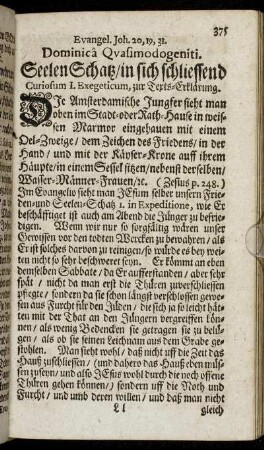 Evangel. Joh. 20, 19, 31.
375
Dominicâ Qvasimodogeniti.
Seelen Schatz / in sich schliessend
Curiosum I. Exegeticum, zur Texts-Erklärung.
DIe Amsterdamische Jungfer sieht man
oben im Stadt-oder Rath-Hause in weis-
sen Marmor eingehauen mit einem
Oel-Zweige / dem Zeichen des Friedens / in der
Hand / und mit der Käyser-Krone auff ihrem
Häupte / in einem Sessel sitzen / nebenst derselben /
Wasser-Männer-Frauen / ꝛc. ( Zesius p. 248. )
Im Evangelio sieht man JEsum selber unsern Frie-
den-und Seelen-Schatz 1. in Expeditione, wie Er
beschäfftiget ist auch am Abend die Jünger zu befrie-
digen. Wenn wir nur so sorgfältig wären unser
Gewissen vor den todten Wercken zu bewahren / als
Er ist solches darvon zu reinigen / so würde es bey wei-
ten nicht so sehr beschweret seyn. Er kömmt an eben
demselben Sabbate / da Er aufferstanden / aber sehr
spät / nicht da man erst die Thüren zuverschliessen
pflegte / sondern da sie schon längst verschlossen gewe-
sen aus Furcht für den Jüden / die sich ja so leicht hät-
ten mit der That an den Jüngern vergreiffen kön-
nen / als wenig Bedencken sie getragen sie zu belü-
gen / als ob sie seinen Leichnam aus dem Grabe ge-
stohlen. Man sieht wohl / daß nicht uff die Zeit das
Hauß zuschliessen / (und dahero das Hauß eben müs-
sen zuseyn / und also JEsus wohl durch die noch offene
Thüren gehen können / ) sondern uff die Noth und
Furcht / und umb deren willen / und daß man nicht
L l
gleich